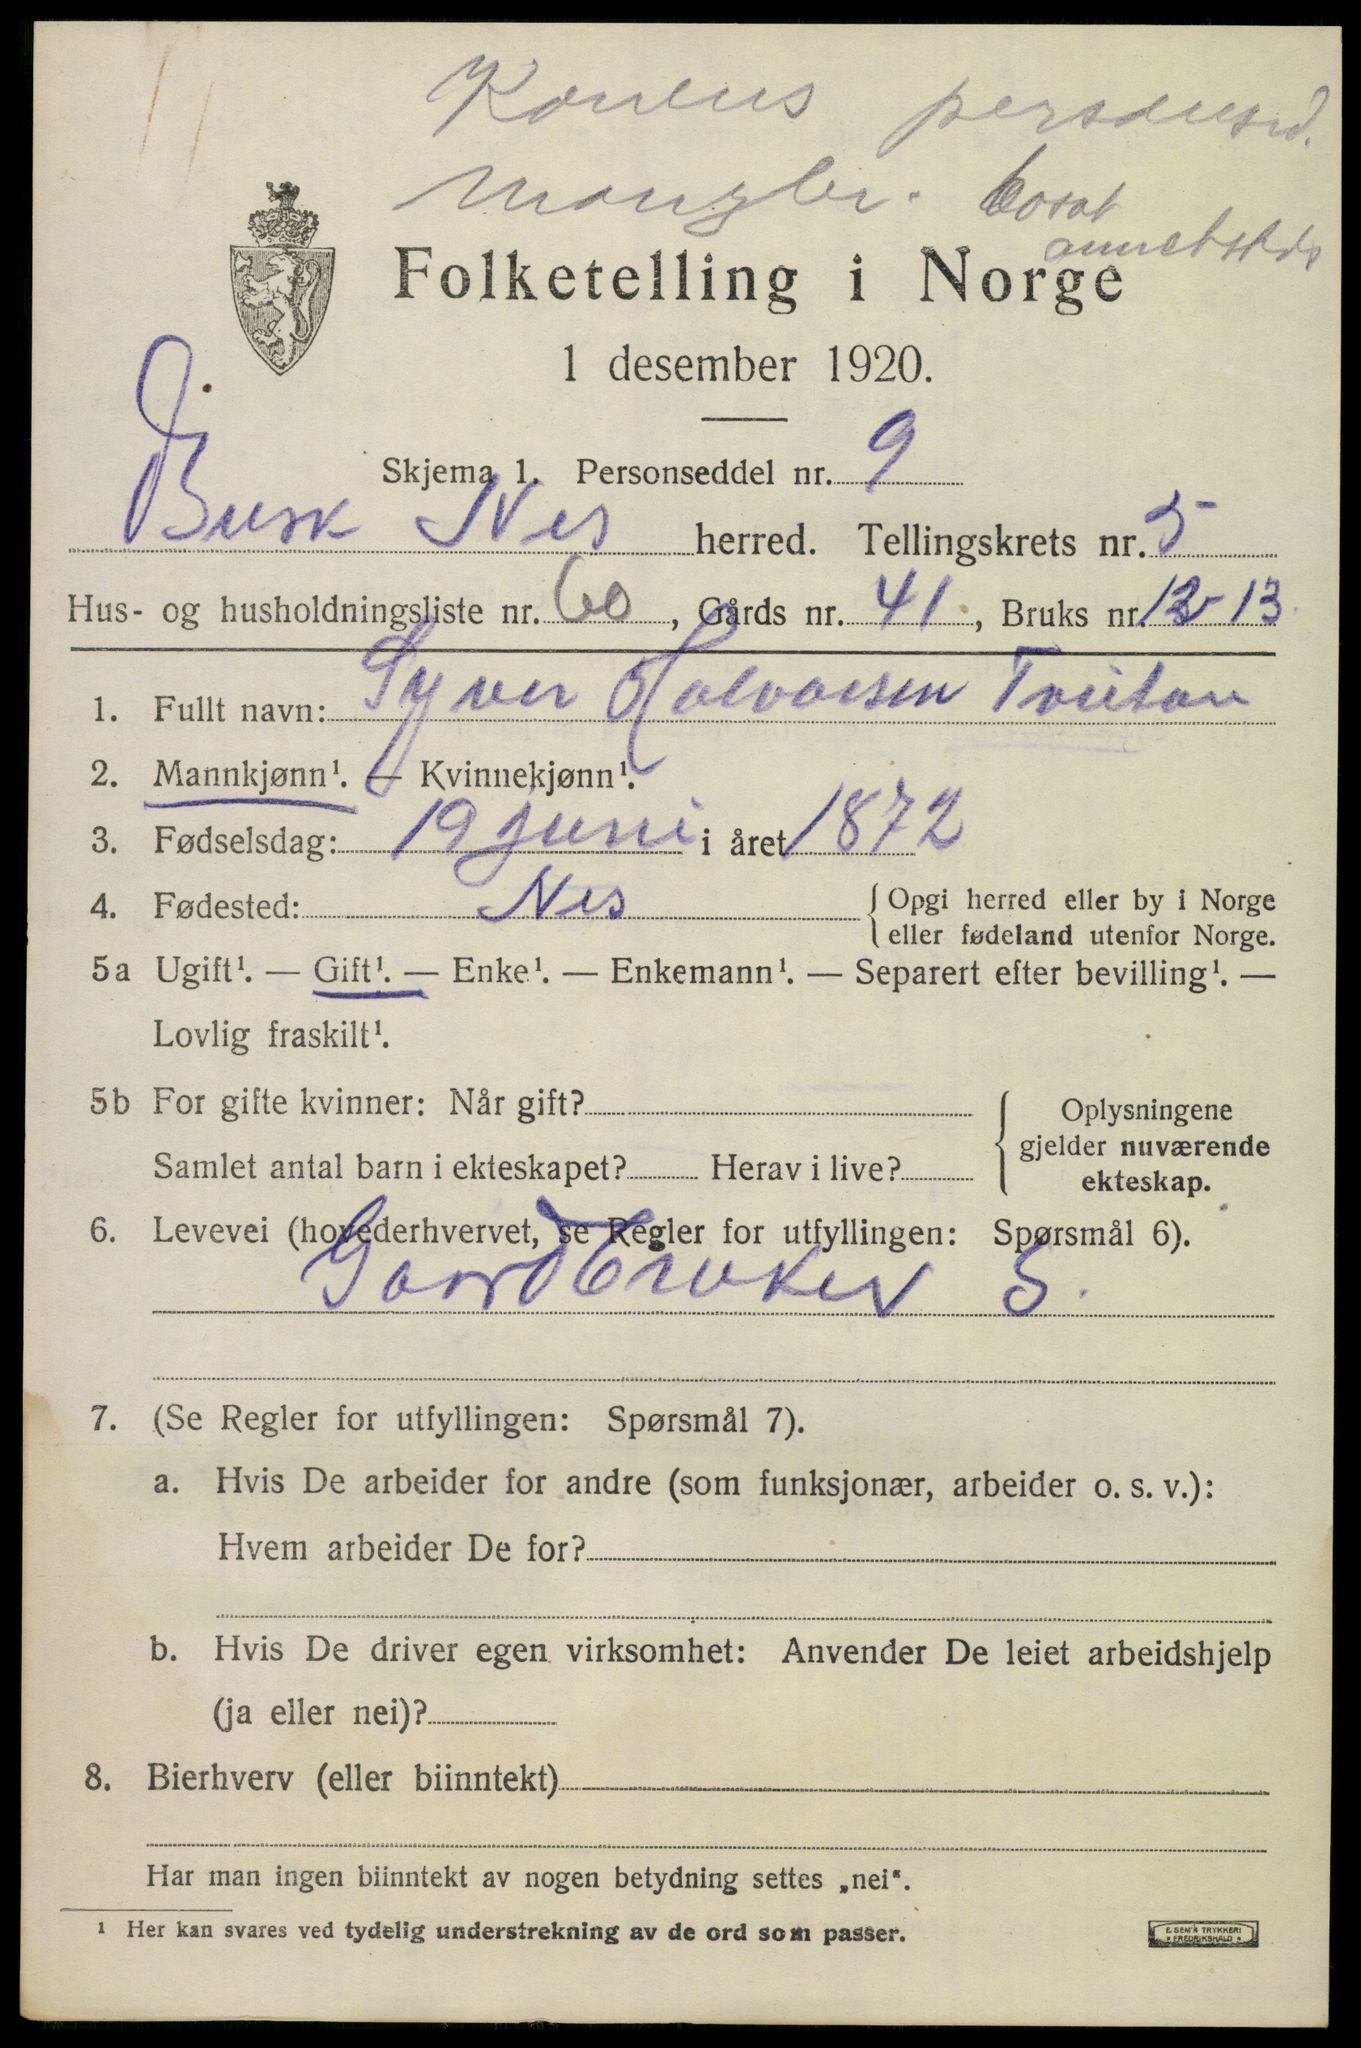 Konens personsed.
mangler. bosat
annetsteds
Folketelling i Norge
1 desember 1920.
Skjema 1. Personseddel nr. 9
Busk Nes herred. Tellingskrets nr. 5
Hus- og husholdningsliste nr. 60, Gårds nr. 41, Bruks nr. 12-13
1. Fullt navn: Syver Halvorsen Tveitan
2. Mannkjønn¹. — Kvinnekjønn¹.
3. Fødselsdag: 19 juni i året 1872
4. Fødested: Nes { Opgi herred eller by i Norge
eller fødeland utenfor Norge.
5a Ugift¹. — Gift¹. — Enke¹. — Enkemann¹. — Separert efter bevilling¹. —
Lovlig fraskilt¹.
5b For gifte kvinner: Når gift?
Samlet antal barn i ekteskapet? Herav i live?
{ Oplysningene
gjelder nuværende
ekteskap.
6. Levevei (hovederhvervet, se Regler for utfyllingen: Spørsmål 6).
Gaardbruker S.
7. (Se Regler for utfyllingen: Spørsmål 7).
a. Hvis De arbeider for andre (som funksjonær, arbeider o. s. v.):
Hvem arbeider De for?
b. Hvis De driver egen virksomhet: Anvender De leiet arbeidshjelp
(ja eller nei)?
8. Bierhverv (eller biinntekt)
Har man ingen biinntekt av nogen betydning settes „nei“.
¹ Her kan svares ved tydelig understrekning av de ord som passer.
E. SEM'S TRYKKERI
FREDRIKSHALD